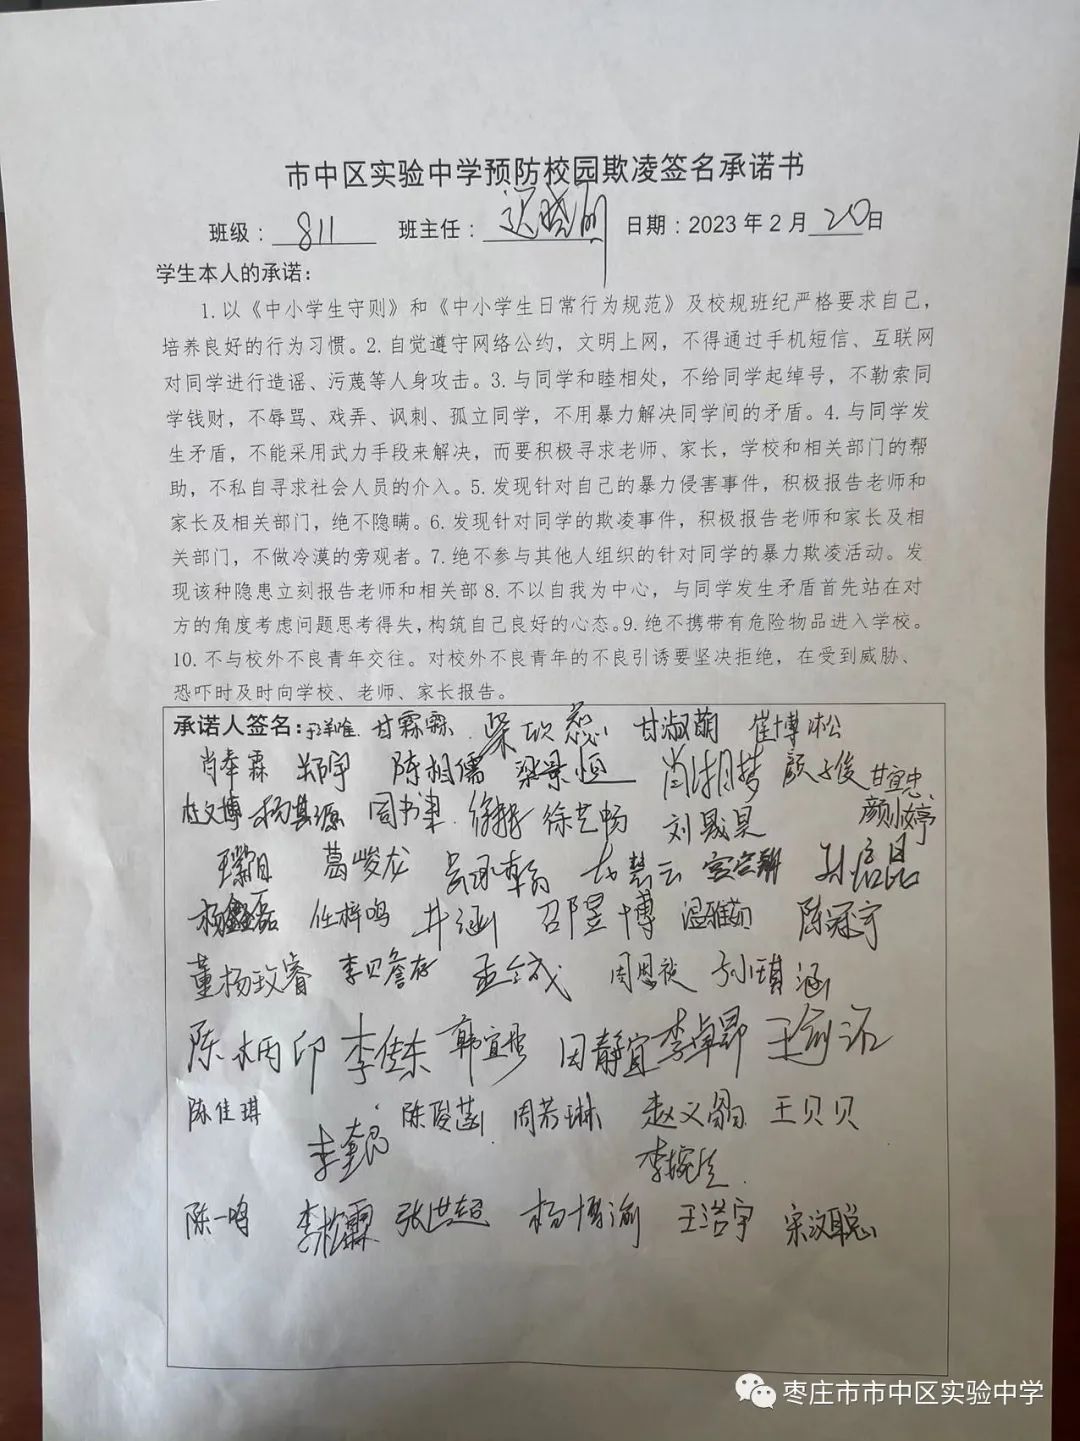 市中区实验中学预防校园欺凌签名承诺书
班级：811 班主任： 日期：2023年2月20日
学生本人的承诺：
1.以《中小学生守则》和《中小学生日常行为规范》及校规班纪严格要求自己，
培养良好的行为习惯。2.自觉遵守网络公约，文明上网，不得通过手机短信、互联网
对同学进行造谣、污蔑等人身攻击。3.与同学和睦相处，不给同学起绰号，不勒索同
学钱财，不辱骂、戏弄、讽刺、孤立同学，不用暴力解决同学间的矛盾。4.与同学发
生矛盾，不能采用武力手段来解决，而要积极寻求老师、家长，学校和相关部门的帮
助，不私自寻求社会人员的介入。5.发现针对自己的暴力侵害事件，积极报告老师和
家长及相关部门，绝不隐瞒。6.发现针对同学的欺凌事件，积极报告老师和家长及相
关部门，不做冷漠的旁观者。7.绝不参与其他人组织的针对同学的暴力欺凌活动。发
现该种隐患立刻报告老师和相关部8.不以自我为中心，与同学发生矛盾首先站在对
方的角度考虑问题思考得失，构筑自己良好的心态。9.绝不携带有危险物品进入学校。
10.不与校外不良青年交往。对校外不良青年的不良引诱要坚决拒绝，在受到威胁、
恐吓时及时向学校、老师、家长报告。
承诺人签名： 甘霖霖 甘淑萌 崔博松
肖奉霖 陈相儒 梁景恒 肖湘梦 颜子俊 甘宜忠
杜文博 杨其源 周书聿 徐艺畅 刘晟昊 颜小婷
葛峻龙 孙启晶
杨鑫磊 任梓鸣 井涵 邵昱博 温雅茹 陈冠宇
董杨玟睿 李贝詹存 孟令成 孙琪涵
陈炳印 李传东 田静宜 李卓昂
陈佳琪 陈俊菡 周芳琳 王贝贝
李奎昂
陈一鸣 李松霖 张洪超 杨博渝 王浩宇 宋汶聪
枣庄市市中区实验中学